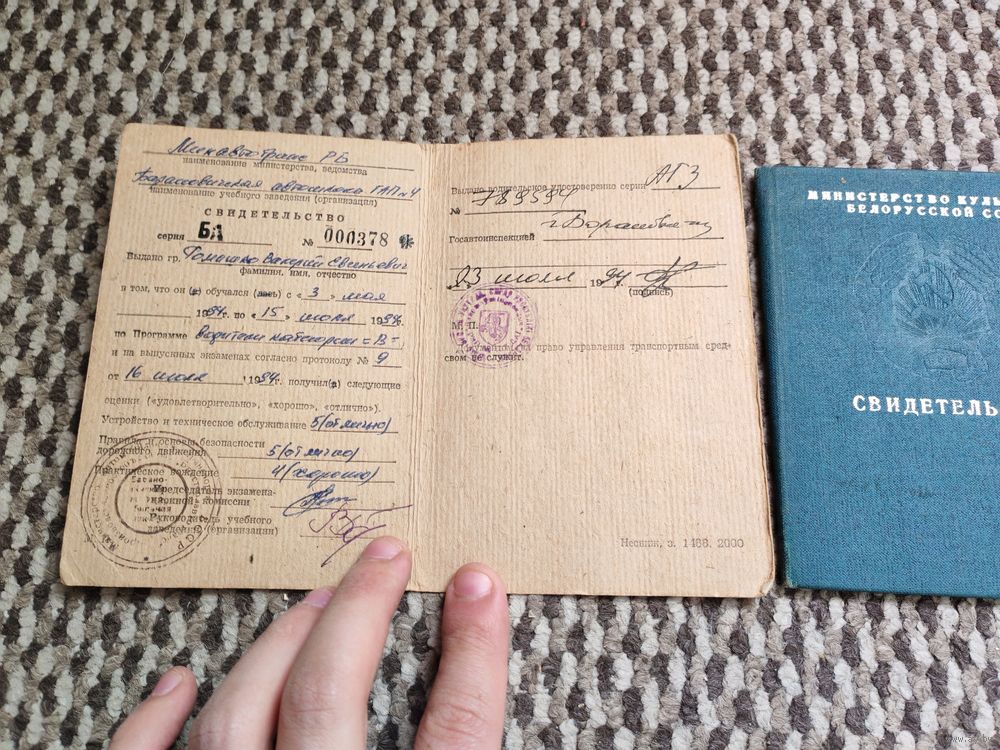 Минавтотранс РБ
наименование министерства, ведомства
Барановичская автошкола ГАП №4
наименование учебного заведения (организация)
СВИДЕТЕЛЬСТВО
серия БА № 000378 *
Выдано гр. Томашко Валерий Евгеньевич
фамилия, имя, отчество
в том, что он (а) обучался (лась) с «3» мая
1994г. по «15» июля 1994г.
по Программе водители категории "В"
и на выпускных экзаменах согласно протоколу № 9
от 16 июля 1994г. получил(а) следующие
оценки («удовлетворительно», «хорошо», «отлично»).
Устройство и техническое обслуживание 5(отлично)
Правила и основы безопасности
дорожного движения 5(отлично)
Практическое вождение 4(хорошо)
Председатель экзамена-
ционной комиссии
Руководитель учебного
заведения (организации)
Выдано водительское удостоверение серии АГЗ
№ 789594
Госавтоинспекцией г. Барановичи
23 июля 1994г.
(подпись)
М. П.
Документом на право управления транспортным сред-
свом не служит.
Несвиж, з. 1486. 2000
МИНИСТЕРСТВО КУЛЬ
БЕЛОРУССКОЙ СС
СВИДЕТЕЛЬ